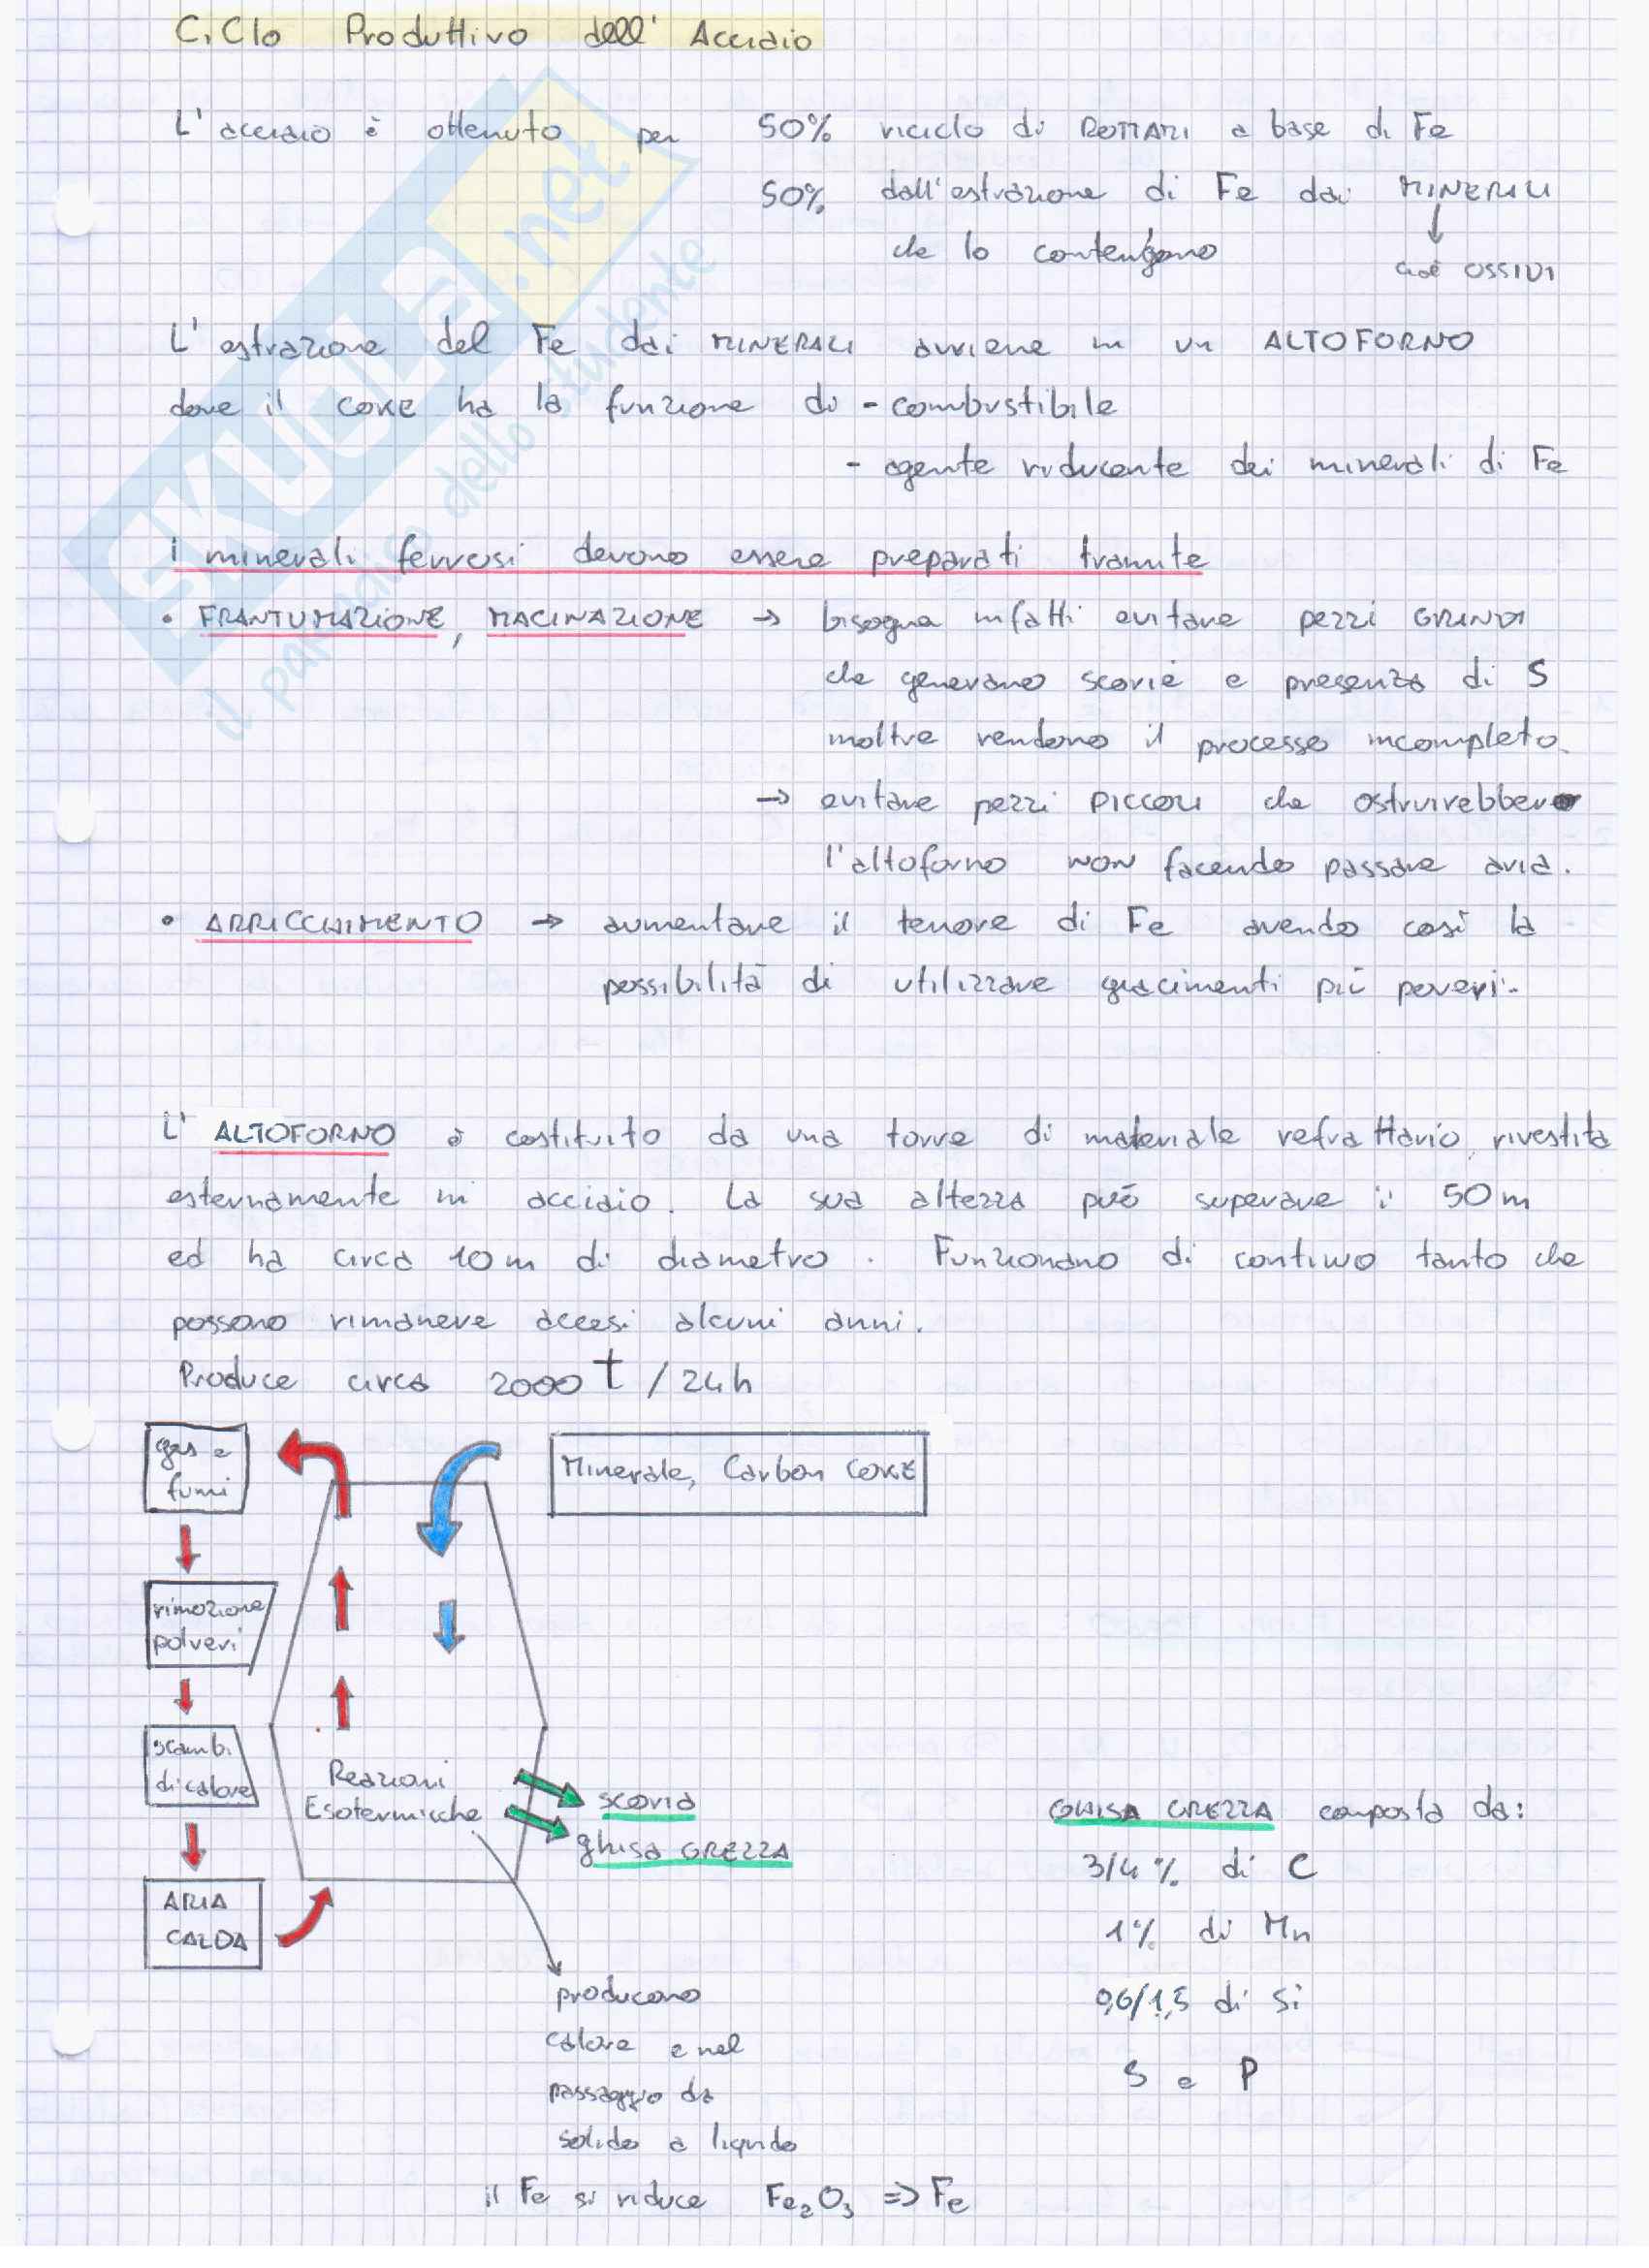 Ciclo Produttivo dell' Acciaio
L'acciaio è ottenuto per 50% riciclo di ROTTAMI a base di Fe
50% dall'estrazione di Fe dai MINERALI
che lo contengono
cioè OSSIDI
L'estrazione del Fe dai MINERALI avviene in un ALTOFORNO
dove il COKE ha la funzione di - combustibile
- agente riducente dei minerali di Fe
i minerali ferrosi devono essere preparati tramite
• FRANTUMAZIONE, MACINAZIONE → bisogna infatti evitare pezzi GRANDI
che generano scorie e presenza di S
inoltre rendono il processo incompleto.
→ evitare pezzi PICCOLI che ostruirebbero
l'altoforno NON facendo passare aria.
• ARRICCHIMENTO → aumentare il tenore di Fe avendo così la
possibilità di utilizzare giacimenti più poveri.
L' ALTOFORNO è costituito da una torre di materiale refrattario, rivestita
esternamente in acciaio. La sua altezza può superare i 50 m
ed ha circa 10 m di diametro. Funzionano di continuo tanto che
possono rimanere accesi alcuni anni.
Produce circa 2000 t / 24h
gas e
fumi
Minerale, Carbon COKE
rimozione
polveri
scambi
di calore
Reazioni
Esotermicche
scoria
ghisa GREZZA
ARIA
CALDA
producono
calore e nel
passaggio da
solido a liquido
il Fe si riduce Fe2O3 => Fe
GHISA GREZZA composta da:
3/4 % di C
1% di Mn
0,6/1,5 di Si
S e P
SKUOLA.net
il paradiso dello studente